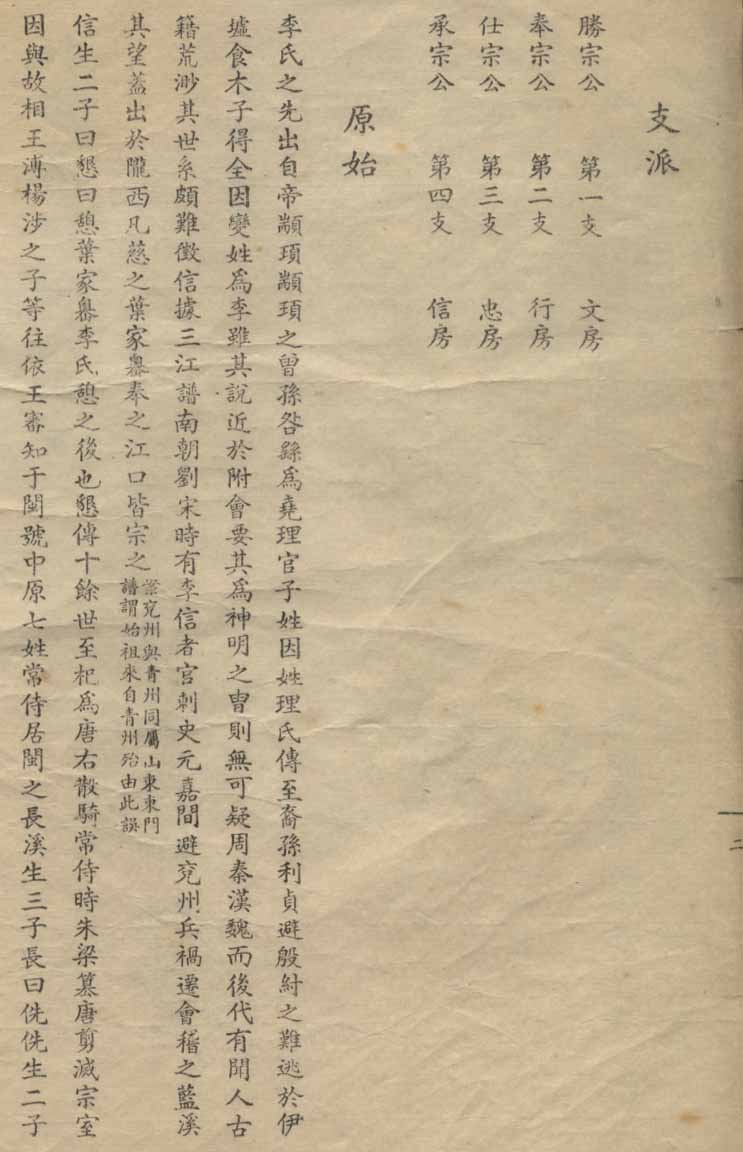 支派
勝宗公 第一支 文房
奉宗公 第二支 行房
仕宗公 第三支 忠房
承宗公 第四支 信房
原始
李氏之先出自帝顓頊顓頊之曾孫咎繇為堯理官子姓因姓理氏傳至裔孫利貞避殷紂之難逃於伊
墟食木子得全因變姓為李雖其說近於附會要其為神明之冑則無可疑周秦漢魏而後代有聞人古
籍荒渺其世系頗難徵信據三江譜南朝劉宋時有李信者官刺史元嘉間避兗州兵禍遷會稽之藍溪
其望蓋出於隴西凡慈之葉家嶴奉之江口皆宗之
案兗州與青州同屬山東東門
譜謂始祖來自青州殆由此誤
信生二子曰懇曰憩葉家嶴李氏憩之後也懇傳十餘世至杞為唐右散騎常侍時朱梁簒唐剪滅宗室
因與故相王溥楊涉之子等往依王審知于閩號中原七姓常侍居閩之長溪生三子長曰侁侁生二子
二